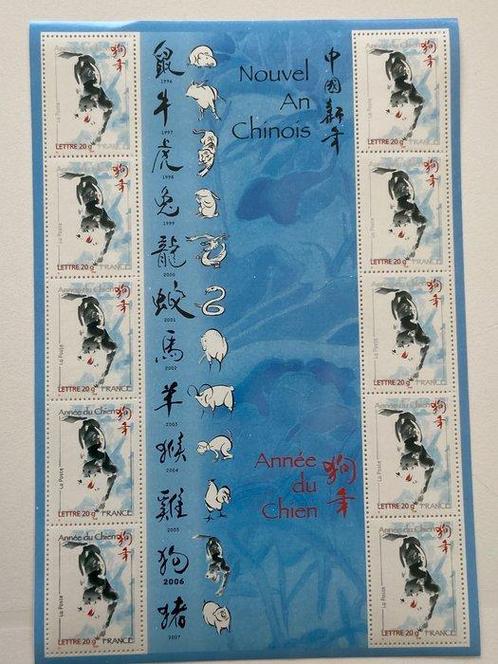 Nouvel
An
Chinois
中國新年
鼠
1996
牛
1997
虎
1998
兔
1999
龍
2000
蛇
2001
馬
2002
羊
2003
猴
2004
雞
2005
狗
2006
猪
2007
Année
du
Chien
狗年
狗年
La Poste
LETTRE 20 g FRANCE
Année du Chien
狗年
La Poste
LETTRE 20 g FRANCE
Année du Chien
狗年
La Poste
LETTRE 20 g FRANCE
Année du Chien
狗年
La Poste
LETTRE 20 g FRANCE
Année du Chien
狗年
La Poste
LETTRE 20 g FRANCE
Année du Chien
狗年
La Poste
LETTRE 20 g FRANCE
Année du Chien
狗年
La Poste
LETTRE 20 g FRANCE
Année du Chien
狗年
La Poste
LETTRE 20 g FRANCE
Année du Chien
狗年
La Poste
LETTRE 20 g FRANCE
Année du Chien
狗年
La Poste
LETTRE 20 g FRANCE